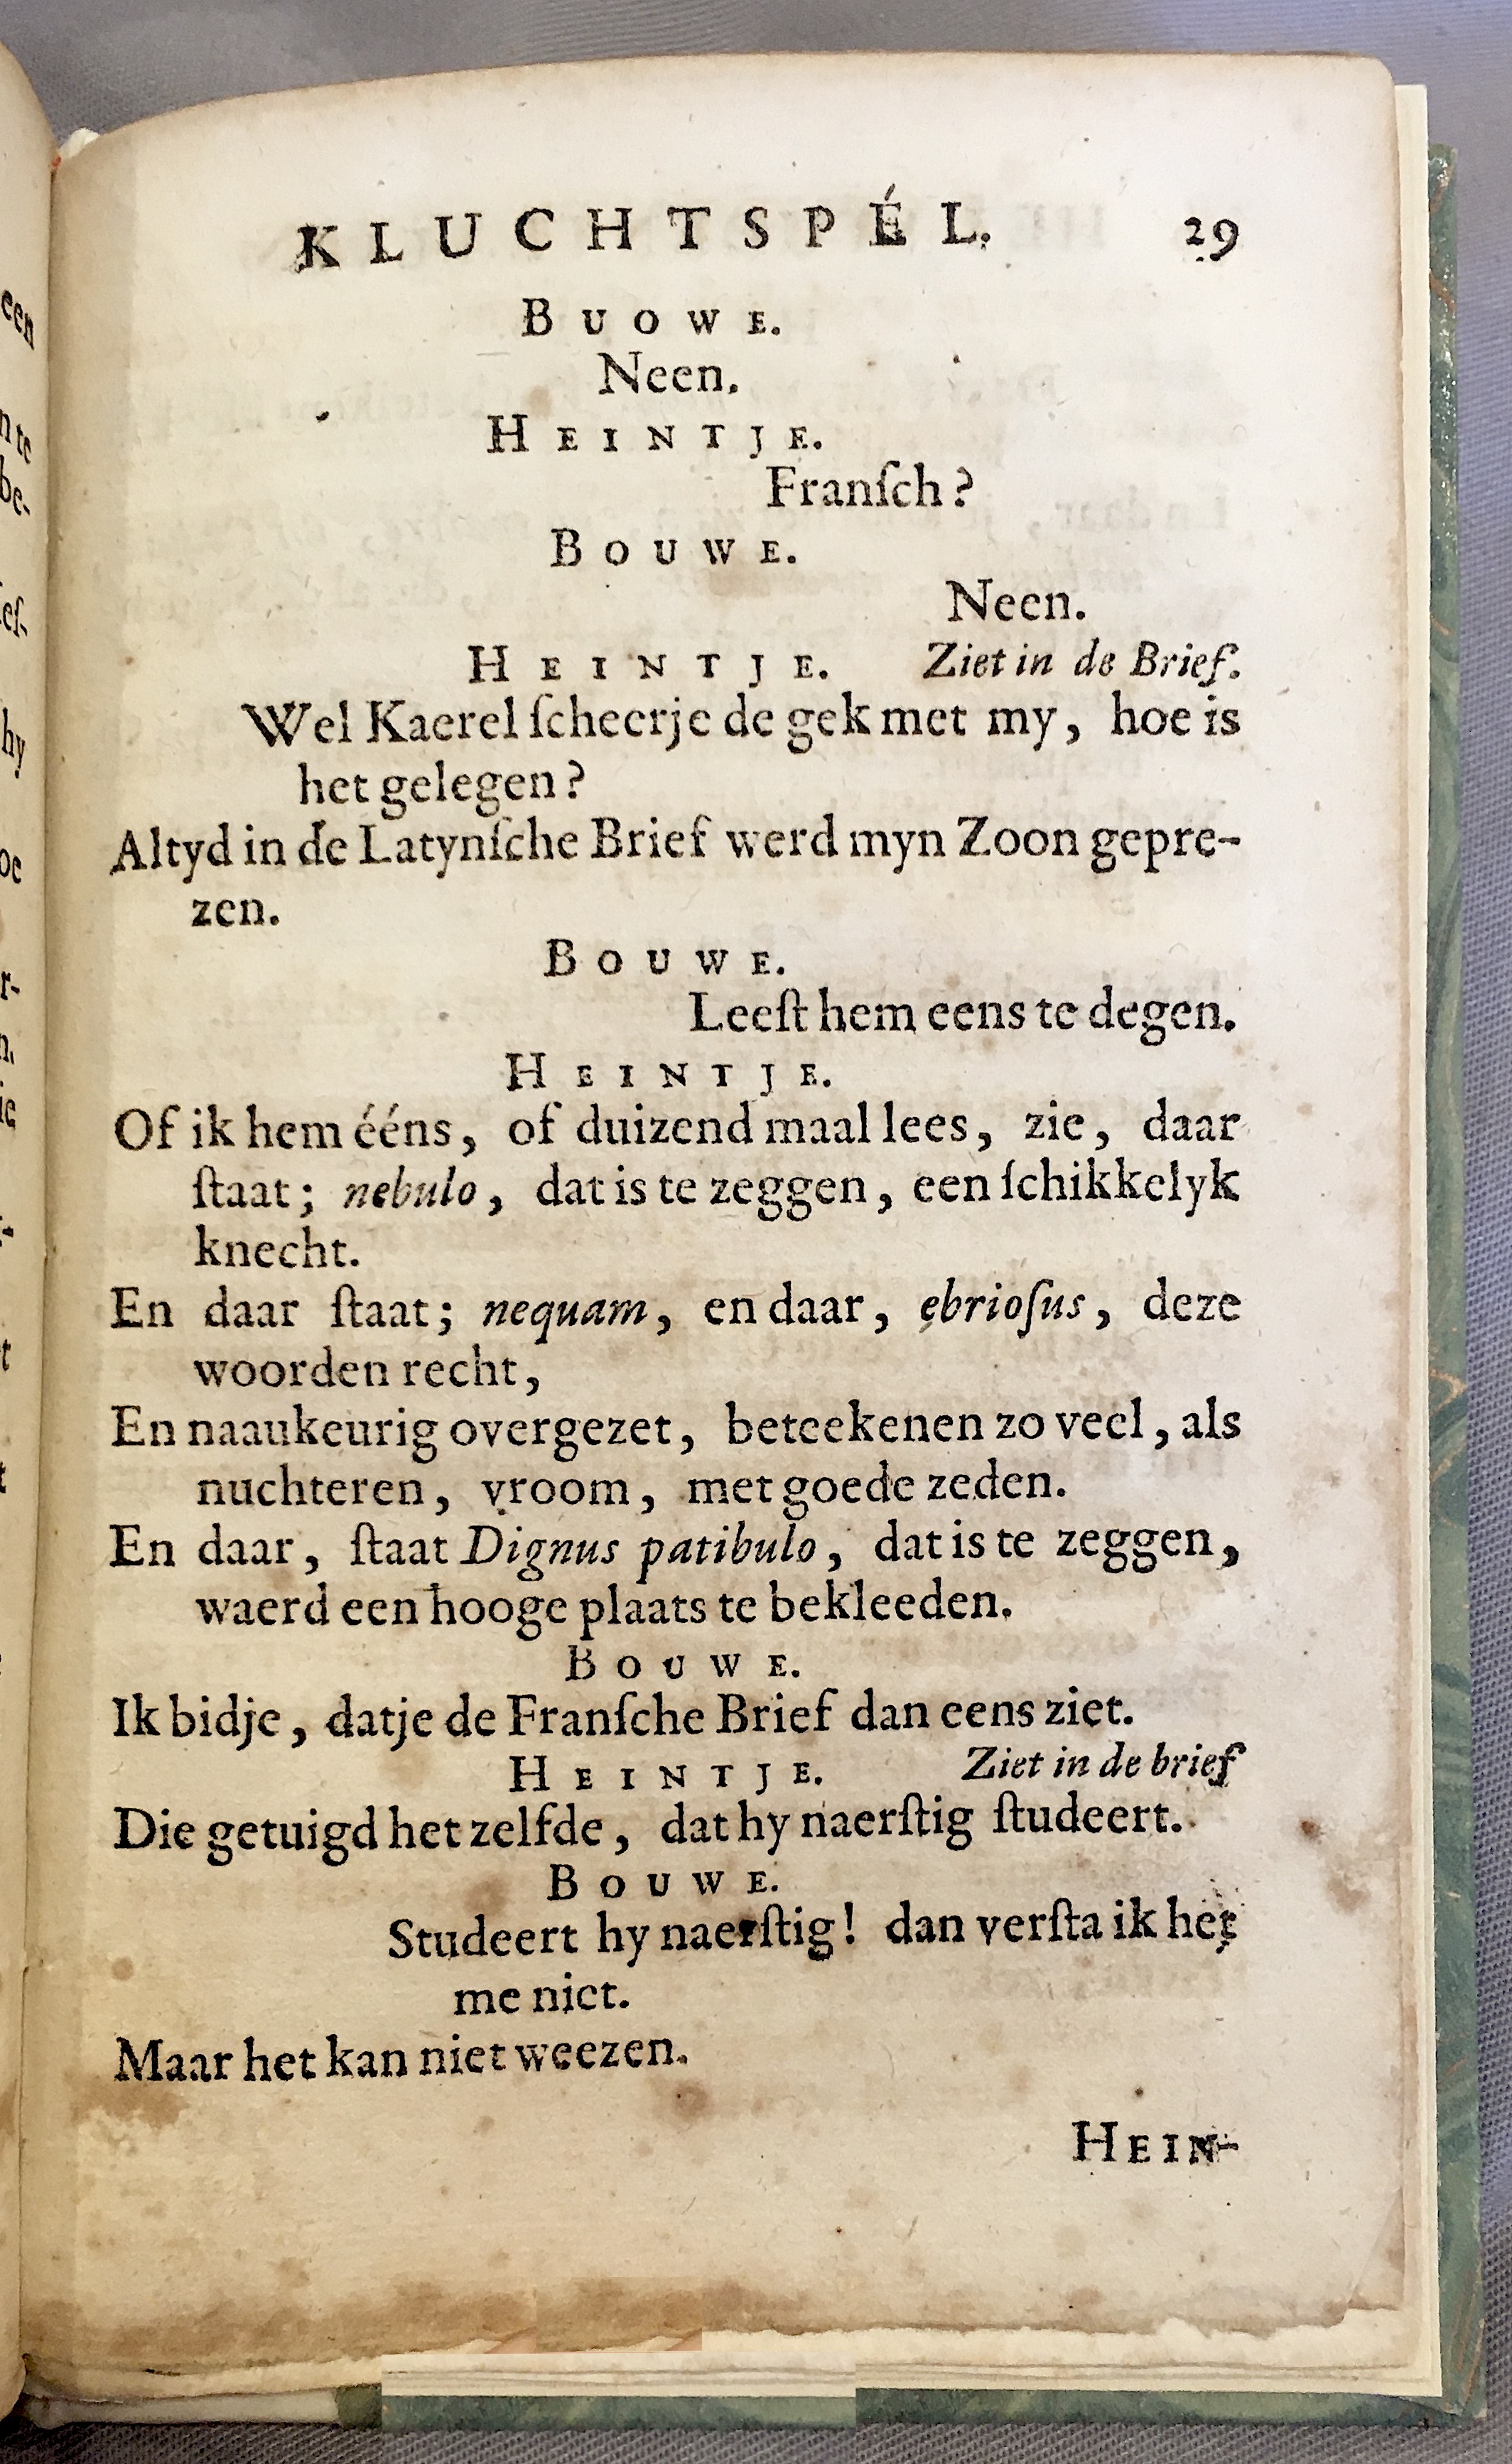 KLUCHTSPÉL. 29
BUOWE.
Neen.
HEINTJE.
Franſch?
BOUWE.
Neen.
HEINTJE. Ziet in de Brief.
Wel Kaerel ſcheerje de gek met my, hoe is
het gelegen?
Altyd in de Latynſche Brief werd myn Zoon gepre-
zen.
BOUWE.
Leeſt hem eens te degen.
HEINTJE.
Of ik hem ééns, of duizend maal lees, zie, daar
ſtaat; nebulo, dat is te zeggen, een ſchikkelyk
knecht.
En daar ſtaat; nequam, en daar, ebrioſus, deze
woorden recht,
En naaukeurig overgezet, beteekenen zo veel, als
nuchteren, vroom, met goede zeden.
En daar, ſtaat Dignus patibulo, dat is te zeggen,
waerd een hooge plaats te bekleeden.
BOUWE.
Ik bidje, datje de Franſche Brief dan eens ziet.
HEINTJE. Ziet in de brief
Die getuigd het zelfde, dat hy naerſtig ſtudeert.
BOUWE.
Studeert hy naerſtig! dan verſta ik het
me niet.
Maar het kan niet weezen.
HEIN-